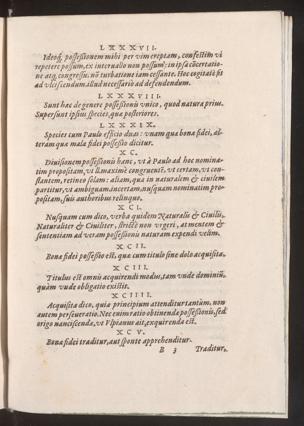 LXXXVII.
Ideoq́; possessionem mihi per vim ereptam, confestim vi
repetere possum, ex interuallo non possum: in ipsa cōcertatio-
ne atq; congressu, nō turbatione iam cessante. Hoc cogitatō fit
ad vlciscendum. Illud necessariò ad defendendum.
LXXXVIII.
Sunt hæc de genere possessionis vnico, quod natura prius.
Supersunt ipsius species, qua posteriores.
LXXXIX.
Species cum Paulo efficio duas: vnam qua bona fidei, al-
teram qua malæ fidei possessio dicitur.
XC.
Diuisionem possessionis hanc, vt à Paulo ad hoc nomina-
tim propositam, vt illi maximè congruentē, vt certam, vt con-
stantem, retineo solam: aliam, quæ in naturalem & ciuilem
partitur, vt ambiguam incertam, nusquam nominatim pro-
positam, suis authoribus relinquo.
XCI.
Nusquam cum dico, verba quidem Naturalis & Ciuilis,
Naturaliter & Ciuiliter, strictè non vrgeri, at mentem &
sententiam ad veram possessionis naturam expendi velim.
XCII.
Bona fidei possessio est, qua cum titulo sine dolo acquisita.
XCIII.
Titulus est omnis acquirendi modus, tam vnde dominiū,
quàm vnde obligatio existit.
XCIIII.
Acquisita dico, quia principium attenditur tantùm, non
autem perseueratio. Nec enim ratio obtinenda possessionis, sed
origo nanciscendæ, vt Vlpianus ait, exquirenda est.
XCV.
Bona fidei traditur, aut sponte apprehenditur.
B 3 Traditur,